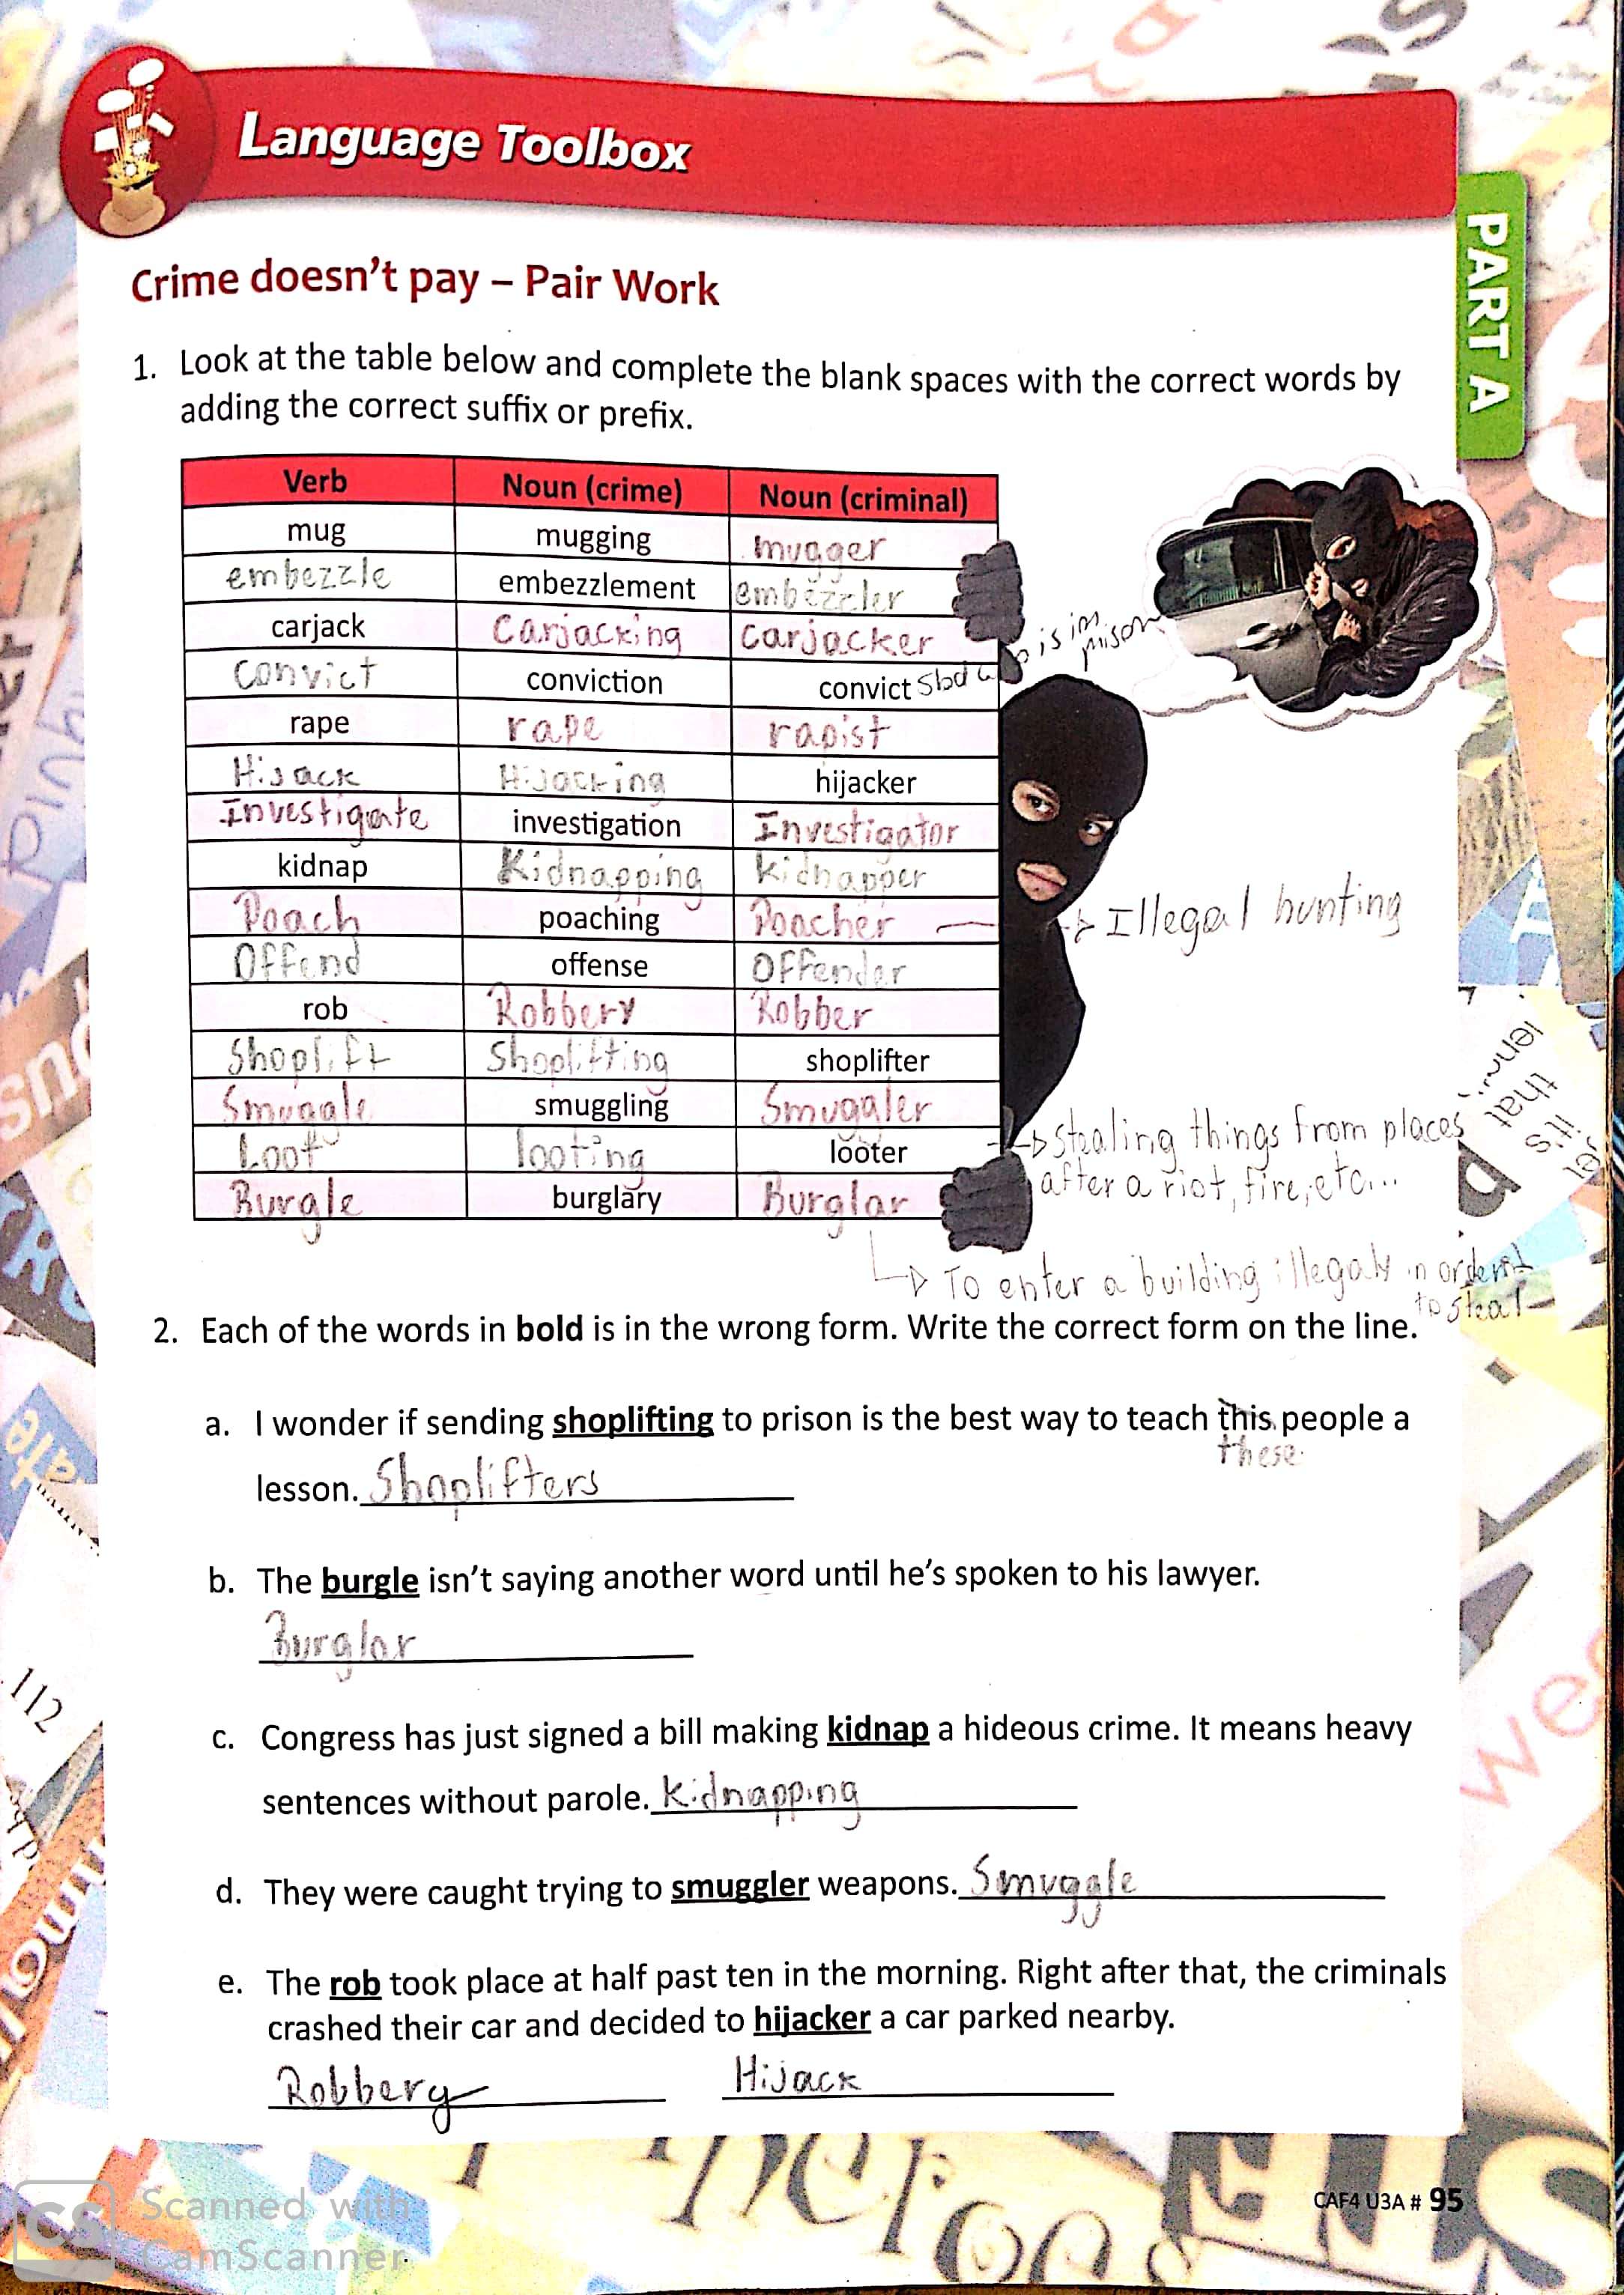 Language Toolbox
PART A
Crime doesn't pay – Pair Work
1. Look at the table below and complete the blank spaces with the correct words by
adding the correct suffix or prefix.
Verb Noun (crime) Noun (criminal)
mug mugging mugger
embezzle embezzlement embezzler
carjack Carjacking carjacker
Convict conviction convict Sbd is in
prison
rape rape rapist
Hijack Hijacking hijacker
Investigate investigation Investigator
kidnap Kidnapping kidnapper
Poach poaching Poacher Illegal hunting
Offend offense Offender
rob Robbery Robber
Shoplift Shoplifting shoplifter
Smuggle smuggling Smuggler
Loot looting looter
Stealing things from places
after a riot, fire, etc...
Burgle burglary Burglar
To enter a building illegaly in order
to steal
2. Each of the words in bold is in the wrong form. Write the correct form on the line.
a. I wonder if sending shoplifting to prison is the best way to teach this people a
these
lesson. Shoplifters
b. The burgle isn't saying another word until he's spoken to his lawyer.
Burglar
c. Congress has just signed a bill making kidnap a hideous crime. It means heavy
sentences without parole. Kidnapping
d. They were caught trying to smuggler weapons. Smuggle
e. The rob took place at half past ten in the morning. Right after that, the criminals
crashed their car and decided to hijacker a car parked nearby.
Robbery Hijack
112
CAF4 U3A # 95
CS Scanned with
CamScanner